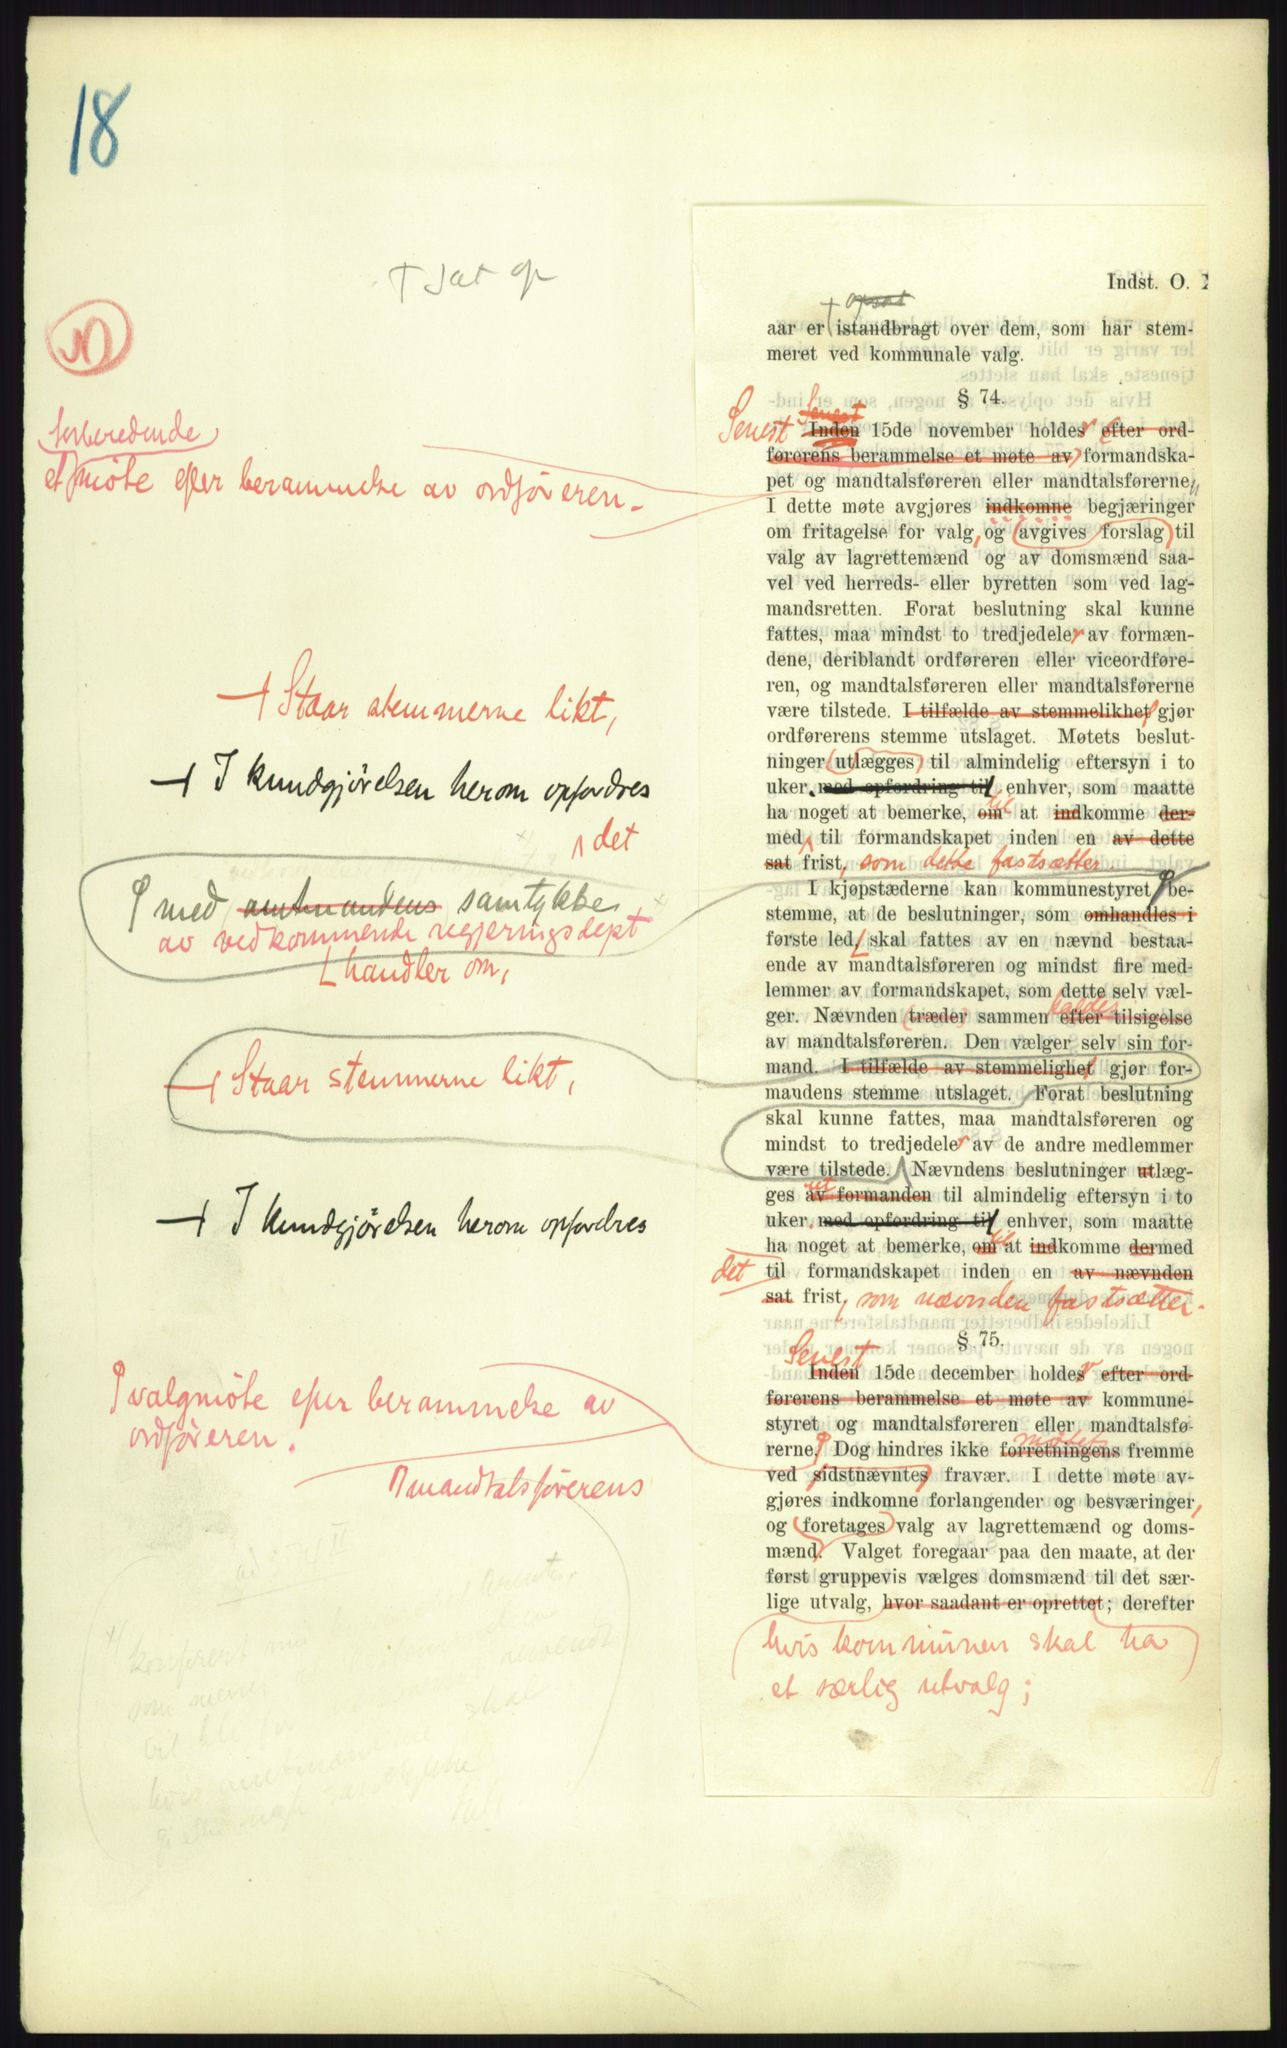 18
† sat op
N
forberedende
et møte efter berammelse av ordføreren.
Staar stemmerne likt,
I kundgjørelsen herom opfordres
det
med amtmandens samtykke
av vedkommende regjeringsdept
handler om,
Staar stemmerne likt,
I kundgjørelsen herom opfordres
valgmøte efter berammelse av
ordføreren.
mandtalsførerens
Indst. O.
opsat
aar er istandbragt over dem, som har stem-
meret ved kommunale valg.
§ 74.
Senest
Senest Inden 15de november holdes efter ord-
førerens berammelse et møte av formandska-
pet og mandtalsføreren eller mandtalsførerne,
I dette møte avgjøres indkomne begjæringer
om fritagelse for valg, og avgives forslag til
valg av lagrettemænd og av domsmænd saa-
vel ved herreds- eller byretten som ved lag-
mandsretten. Forat beslutning skal kunne
fattes, maa mindst to tredjedeler av formæn-
dene, deriblandt ordføreren eller viceordføre-
ren, og mandtalsføreren eller mandtalsførerne
være tilstede. I tilfælde av stemmelikhet gjør
ordførerens stemme utslaget. Møtets beslut-
ninger utlægges til almindelig eftersyn i to
uker. med opfordring til enhver, som maatte
til
ha noget at bemerke, om at indkomme der-
med til formandskapet inden en av dette
sat frist, som dette fastsætter
I kjøpstæderne kan kommunestyret be-
stemme, at de beslutninger, som omhandles i
første led, skal fattes av en nævnd bestaa-
ende av mandtalsføreren og mindst fire med-
lemmer av formandskapet, som dette selv væl-
kaldes
ger. Nævnden træder sammen efter tilsigelse
av mandtalsføreren. Den vælger selv sin for-
mand. I tilfælde av stemmelighet gjør for-
mandens stemme utslaget. Forat beslutning
skal kunne fattes, maa mandtalsføreren og
mindst to tredjedeler av de andre medlemmer
være tilstede. Nævndens beslutninger utlæg-
ut
ges av formanden til almindelig eftersyn i to
uker. med opfordring til enhver, som maatte
til
ha noget at bemerke, om at indkomme dermed
det til formandskapet inden en av nævnden
sat frist, som nævnden fastsætter.
§ 75.
Senest
Inden 15de december holdes efter ord-
førerens berammelse et møte av kommune-
styret og mandtalsføreren eller mandtalsfø-
møtets
rerne, Dog hindres ikke forretningens fremme
ved sidstnævntes fravær. I dette møte av-
gjøres indkomne forlangender og besværinger,
og foretages valg av lagrettemænd og doms-
mænd. Valget foregaar paa den maate, at der
først gruppevis vælges domsmænd til det sær-
lige utvalg, hvor saadant er oprettet; derefter
hvis kommunen skal ha
et særlig utvalg;